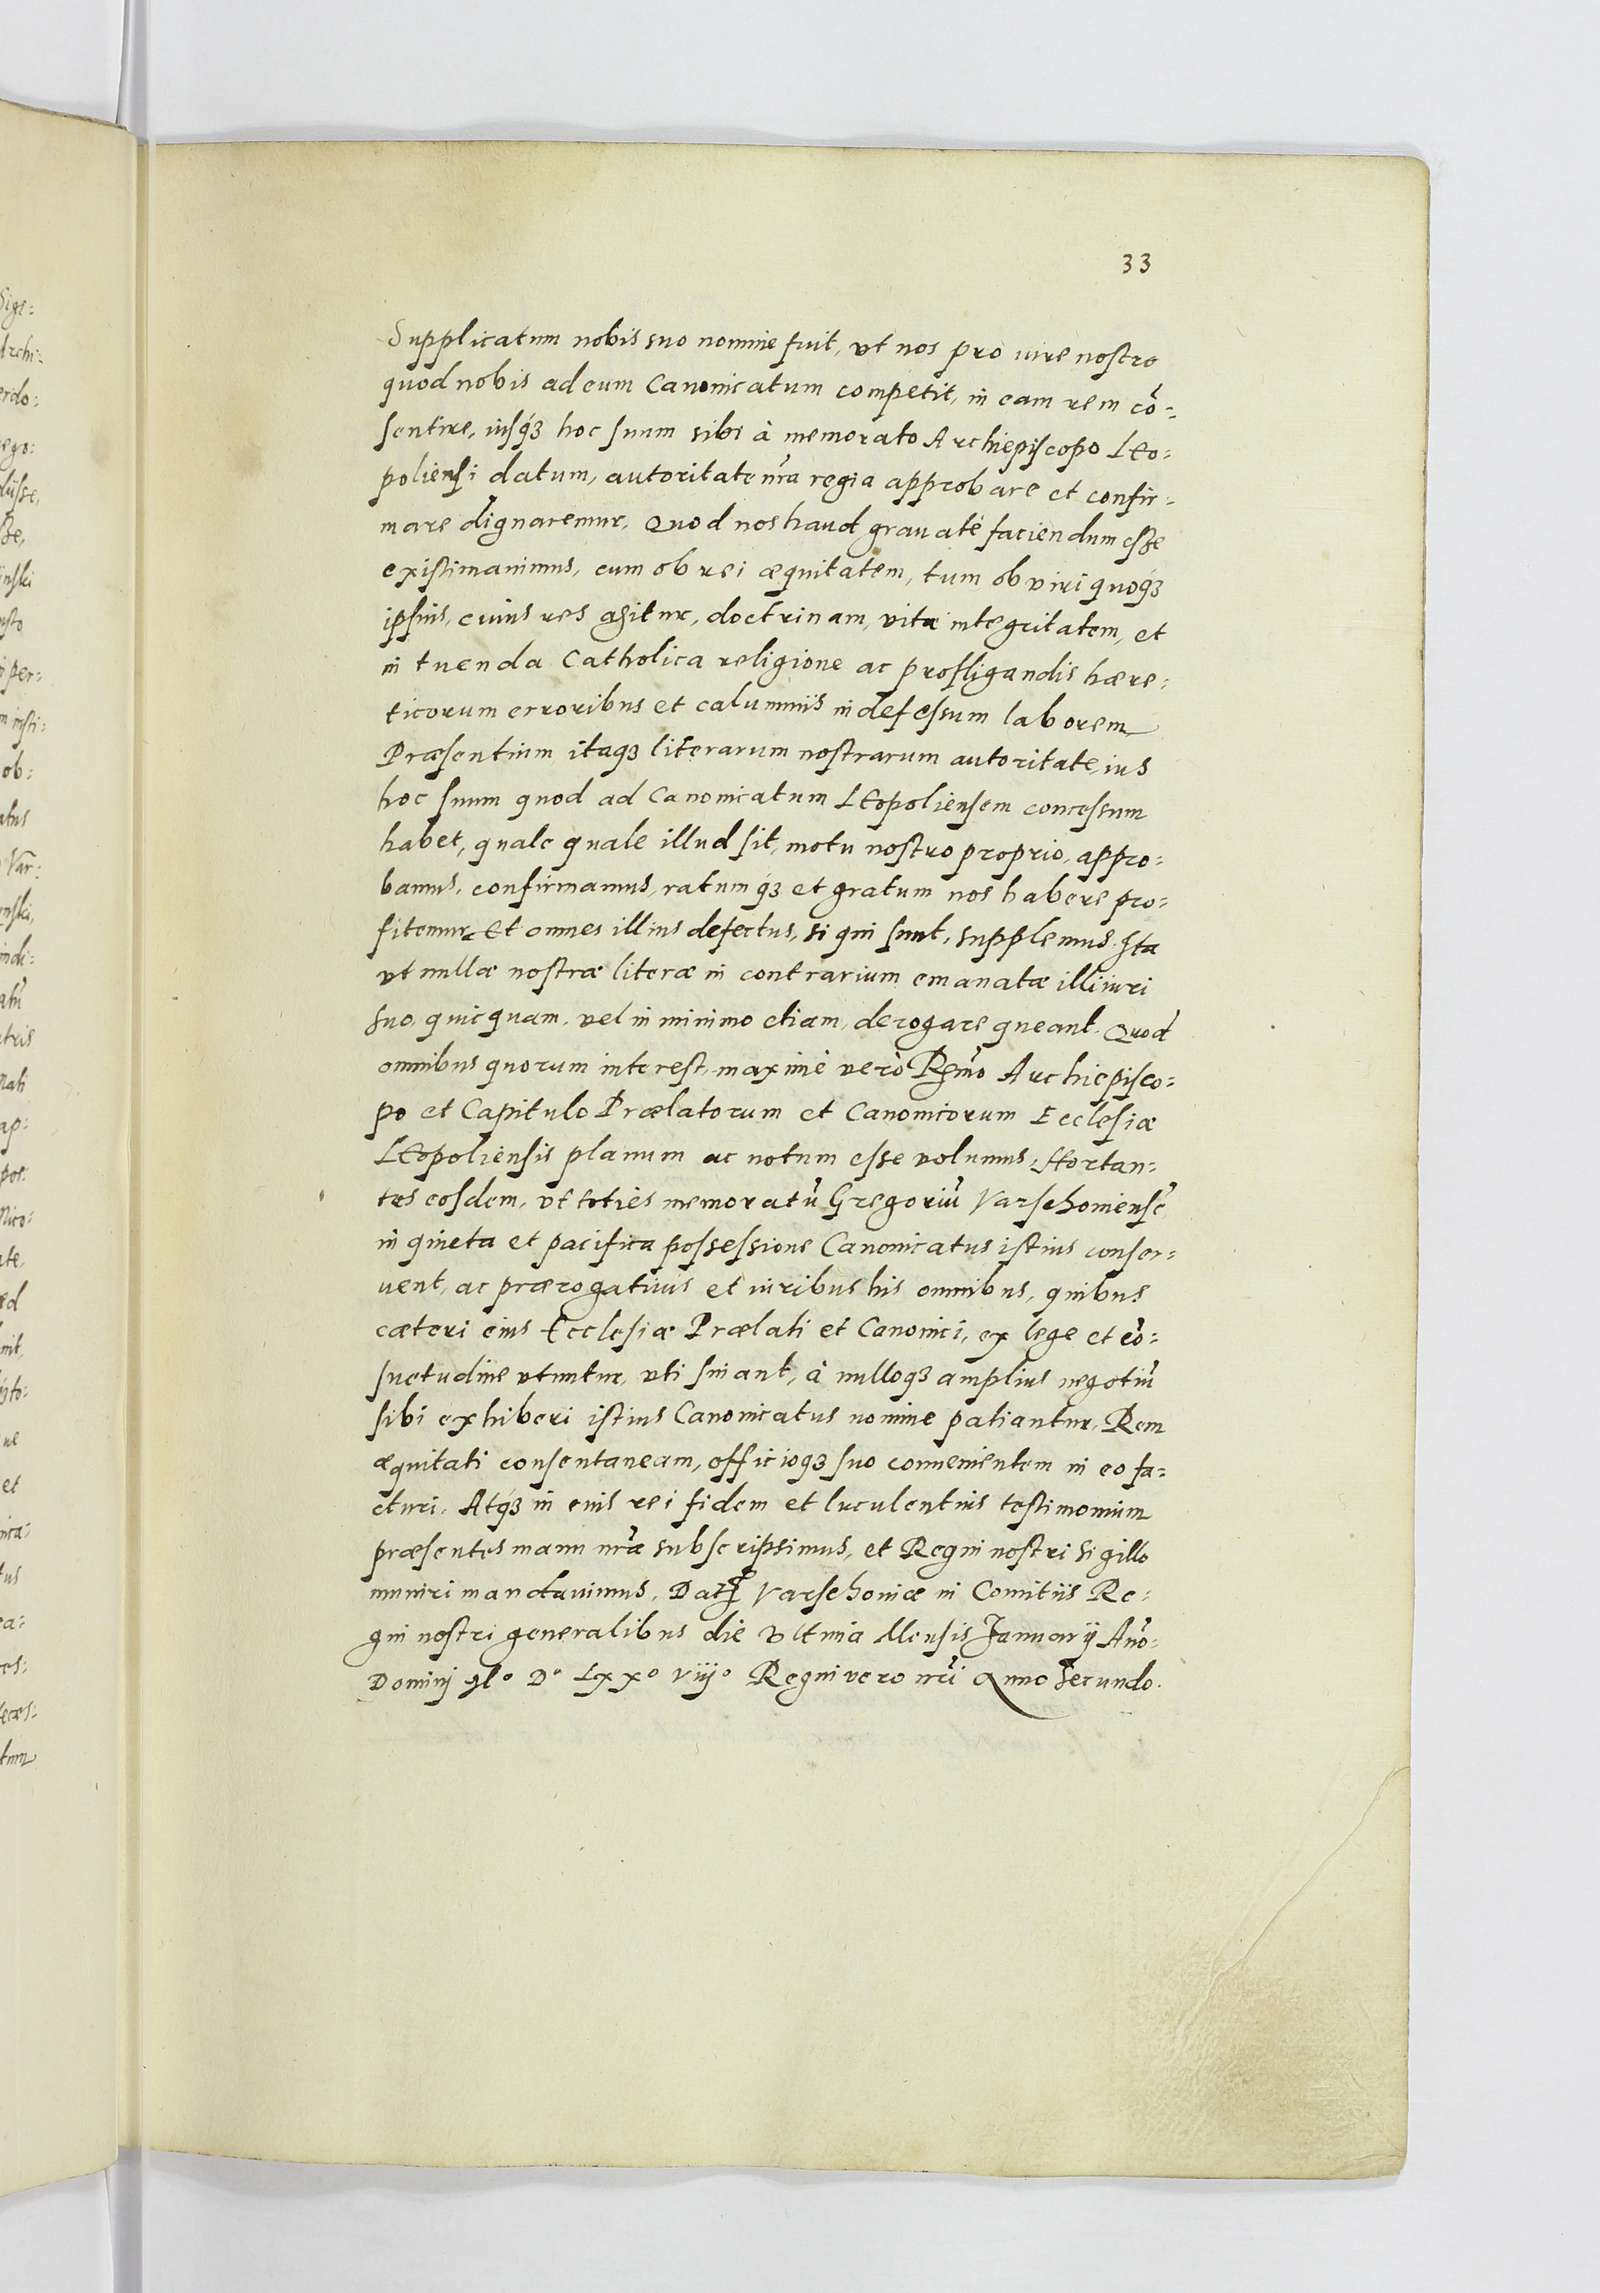 33
Supplicatum nobis suo nomine fuit, vt nos pro iure nostro
quod nobis ad eum Canonicatum competit, in eam rem cō=
sentire, iusq́ʒ hoc suum sibi à memorato Archiepiscopo Leo=
poliensi datum, autoritate nr̄a regia approbare et confir=
mare dignaremur, Quod nos haud grauatè faciendum esse
existimauimus, cum ob rei æquitatem, tum ob viri quoq́ʒ
ipsius, cuius res agitur, doctrinam, vitæ integritatem, et
in tuenda Catholica religione ac profligandis hære=
ticorum erroribus et calumniis indefessum laborem
Præsentium itaqʒ literarum nostrarum autoritate, ius
hoc suum quod ad Canonicatum Leopoliensem concessum
habet, quale quale illud sit, motu nostro proprio, appro=
bamus, confirmamus, ratumq́ʒ et gratum nos habere pro=
fitemur Et omnes illius defectus, si qui sunt, supplemus. Ita
vt nullæ nostræ literæ in contrarium emanatæ illi iuri
suo, quicquam, vel in minimo etiam, derogare queant. Quod
omnibus quorum interest, maximè verò Rm̄o Archiepisco=
po et Capitulo Prælatorum et Canonicorum Ecclesiæ
Leopoliensis planum ac notum esse volumus, Hortan=
tes eosdem, vt toties memoratū Gregoriū Varschoniensē
in quieta et pacifica possessione Canonicatus istius conser=
uent, ac prærogatiuis et iuribus his omnibus, quibus
cæteri eius Ecclesiæ Prælati et Canonici, ex lege et cō=
suetudine vtuntur, vti sinant, à nulloqʒ amplius negotiū
sibi exhiberi istius Canonicatus nomine patiantur, Rem
æquitati consentaneam, officioqʒ suo conuenientem in eo fa=
cturi. Atq́ʒ in euis rei fidem et luculentius testimonium
præsentes manu nr̄a subscripsimus, et Regni nostri sigillo
muniri mandauimus. Datꝝ Varschoniæ in Comitiis Re=
gni nostri generalibus die vltima Mensis Januarij Anō.
Dominj Mo Do Lxxo viijo Regni vero nr̄i Anno Secundo.